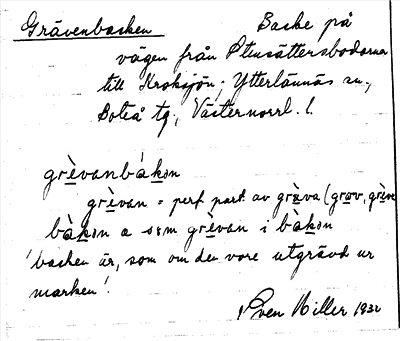 Grävenbacken Backe på
vägen från Stensättersbodarna
till Kroksjön; Ytterlännäs sn,
Boteå tg, Västernorrl. l.
grèvanbàkən
grèvan = perf. part. av gräva (grov, grève
bàkən a səm grèvan i bàkən
'backen är, som om den vore utgrävd ur
marken'.
Sven Hiller 1932